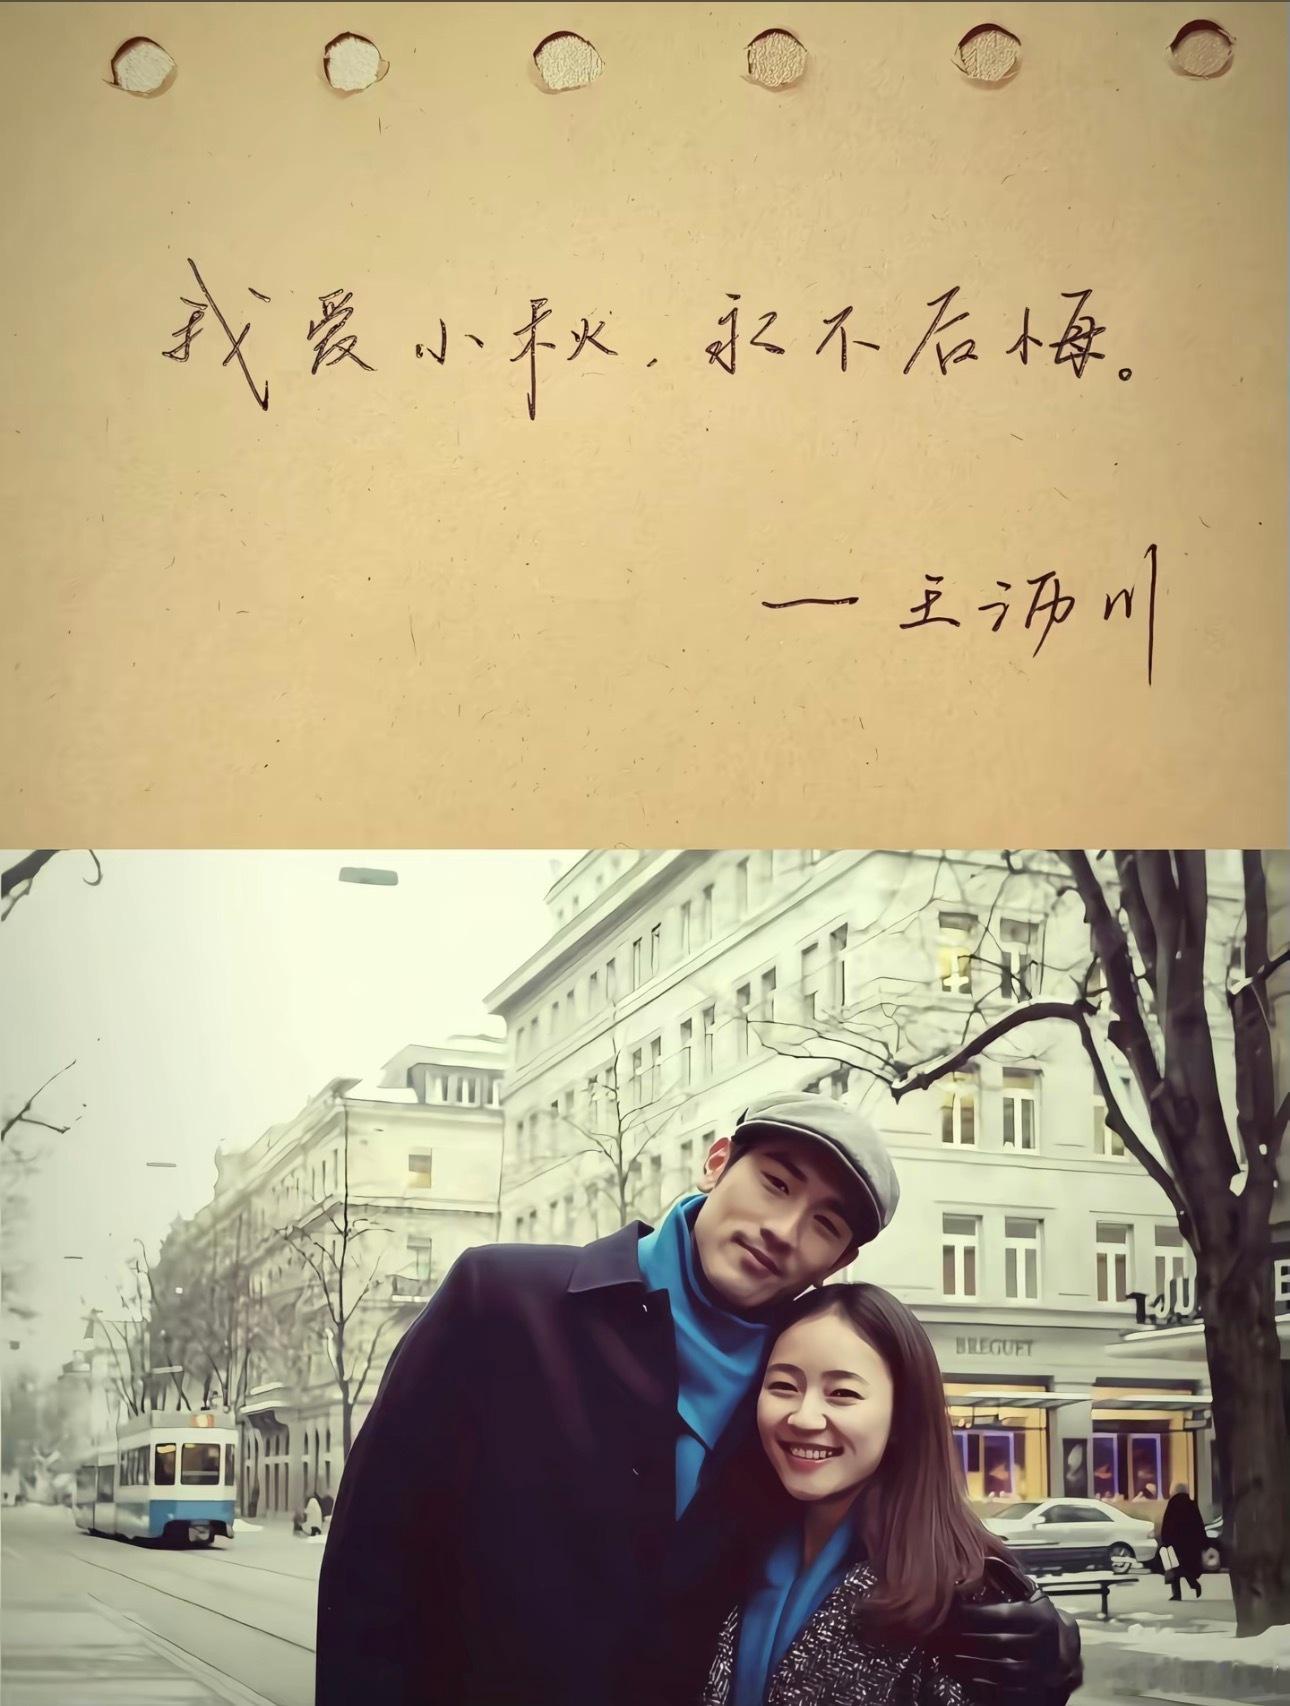 我爱小秋，永不后悔。
—王沥川
BREGUET